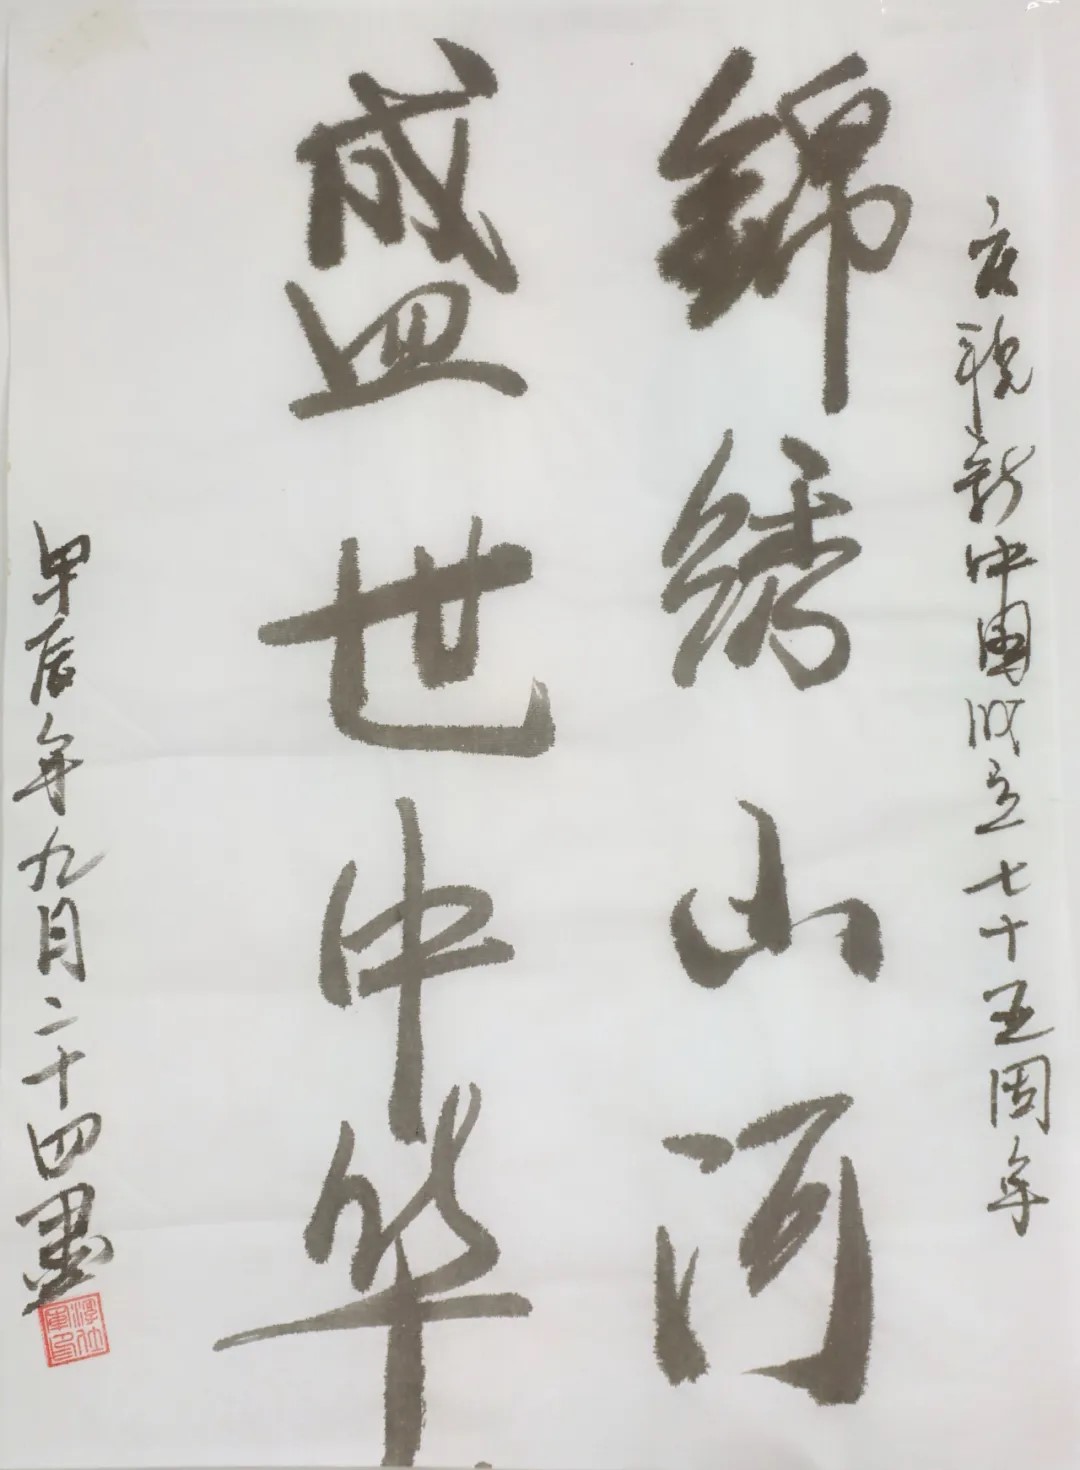 庆祝新中国成立七十五周年
锦绣山河
盛世中华
甲辰年九月二十四墨